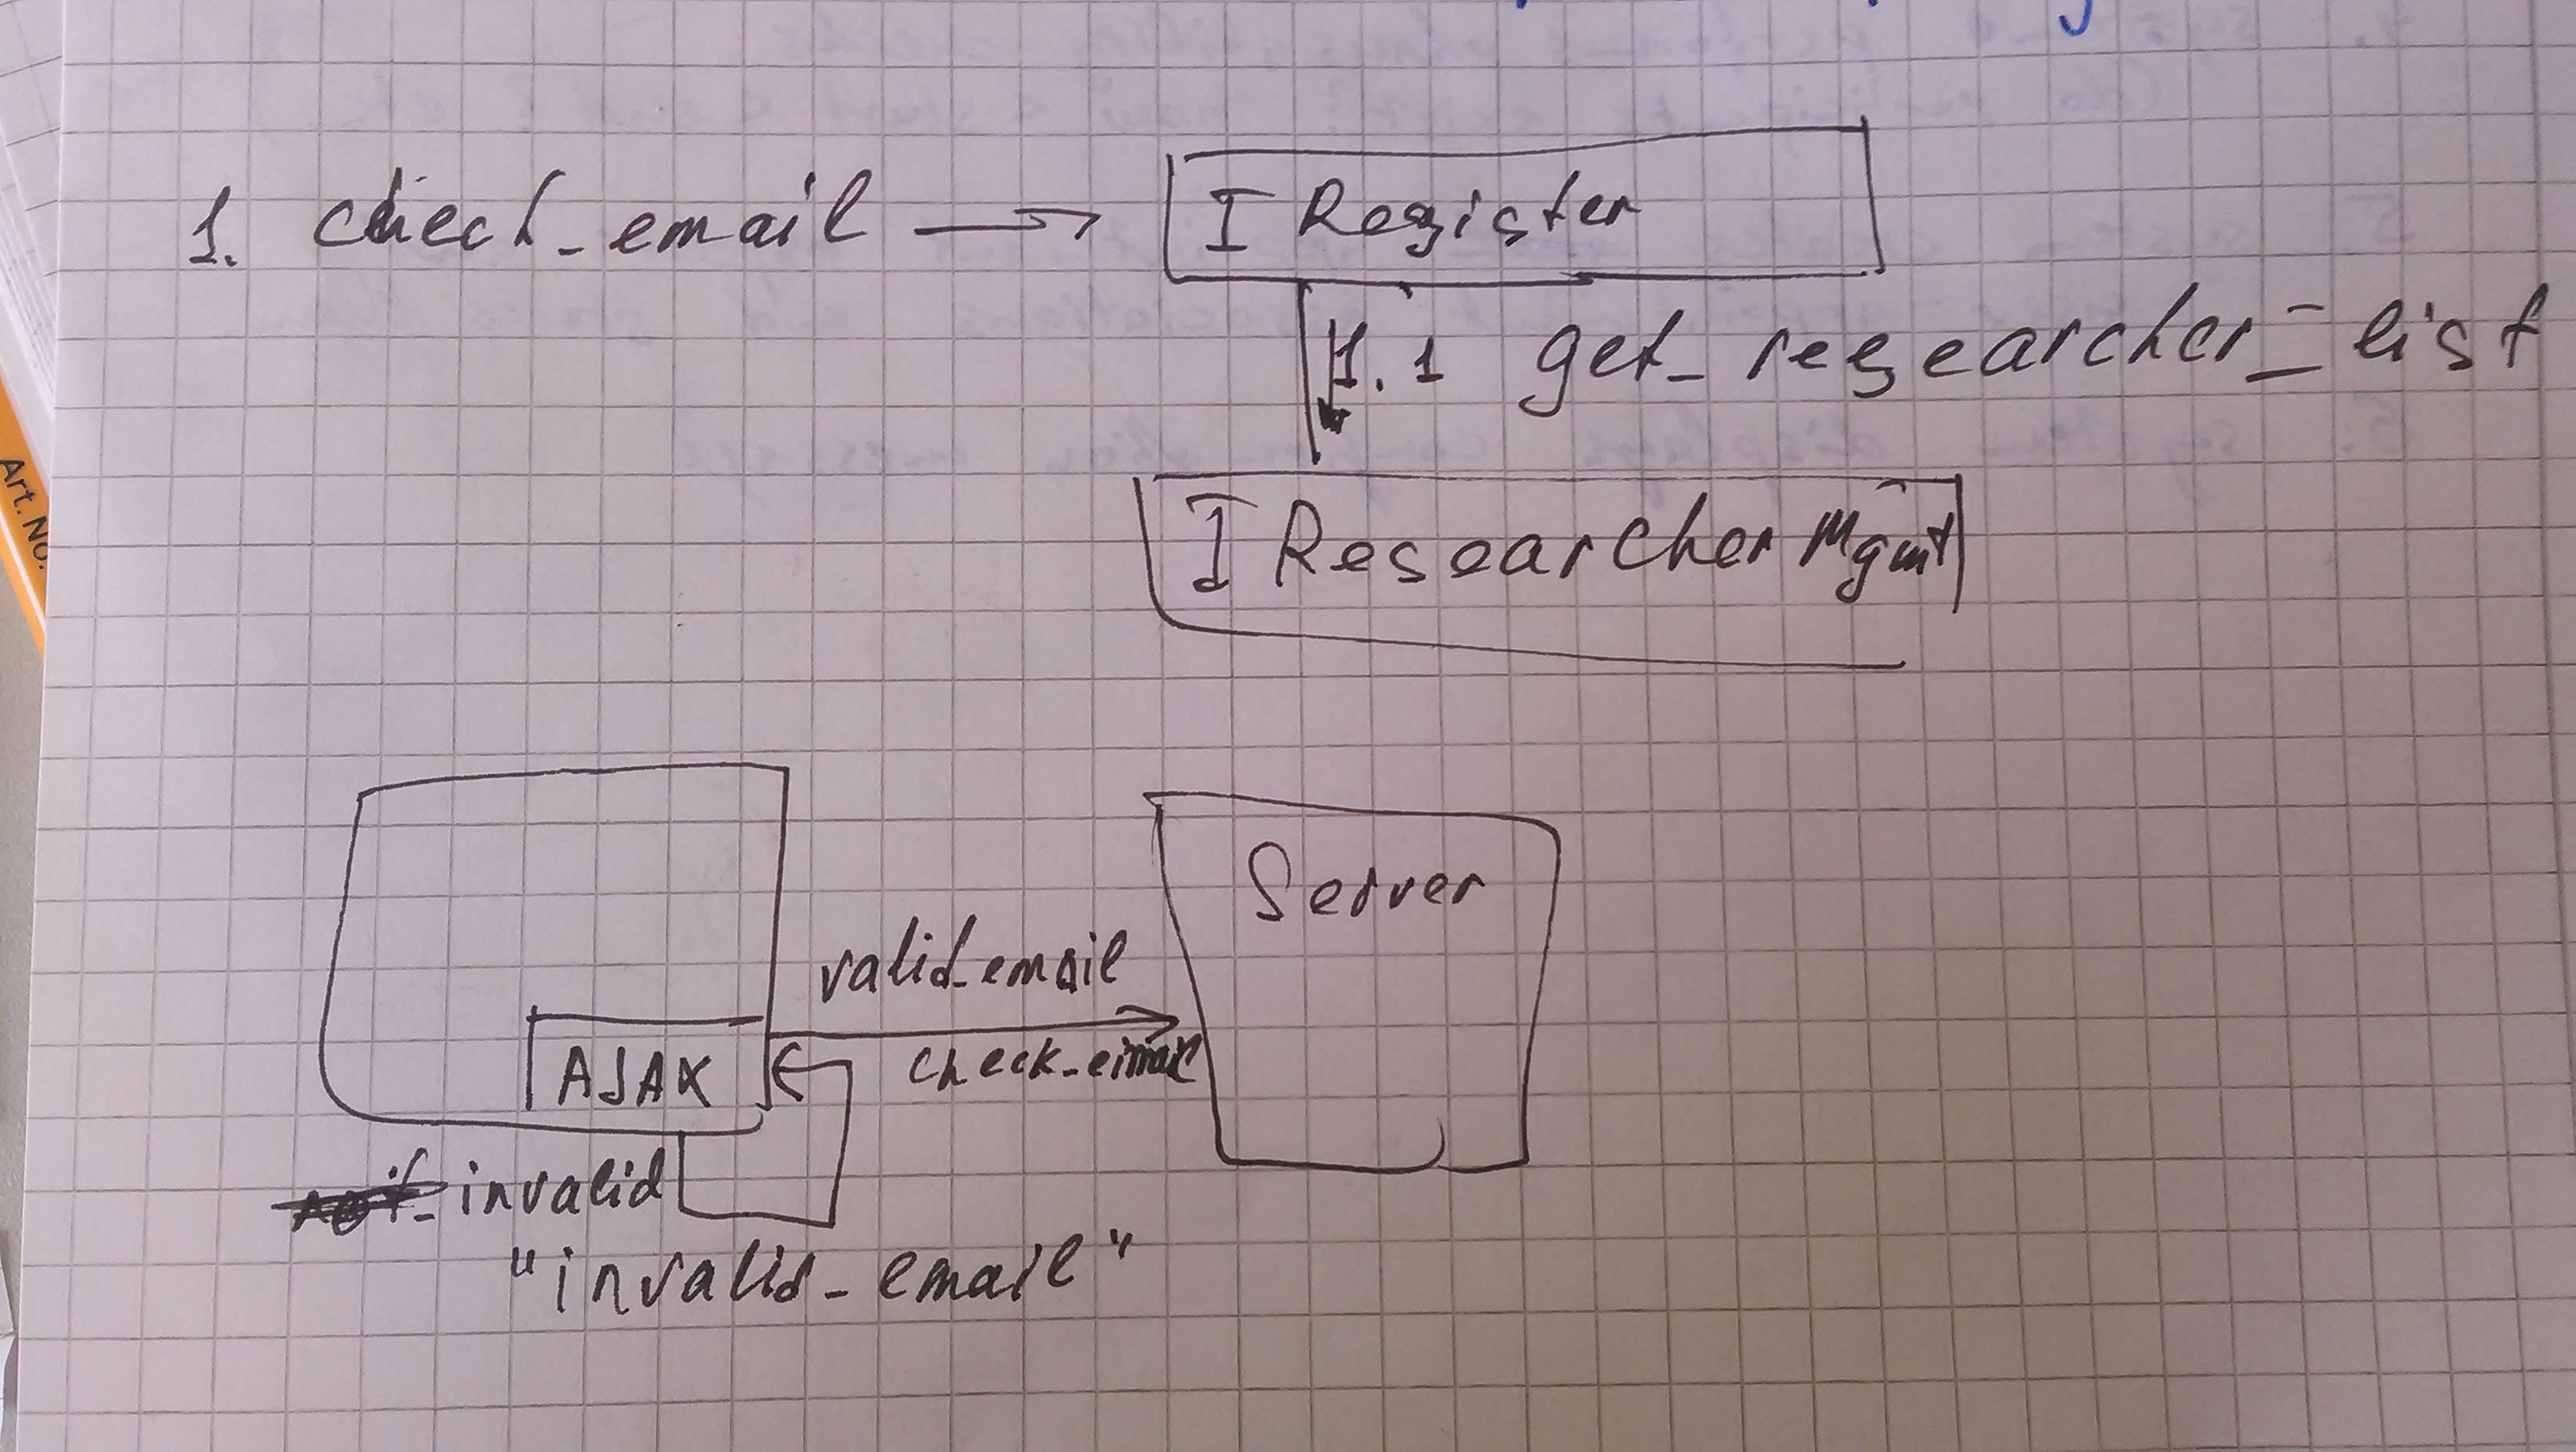 1. check_email
I Register
1.1 get_researcher_list
I Researcher Mgmt
Server
valid_email
AJAX
check_email
invalid
"invalid_email"
Art. No.